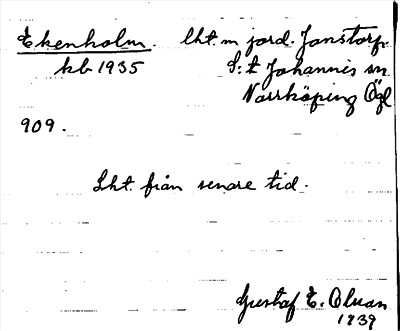 Ekenholm. lht. m jord. Janstorp.
kb 1935 S:t Johannis sn
Norrköping Ögl
909.
Lht. från senare tid.
Gustaf E. Olsan
1939